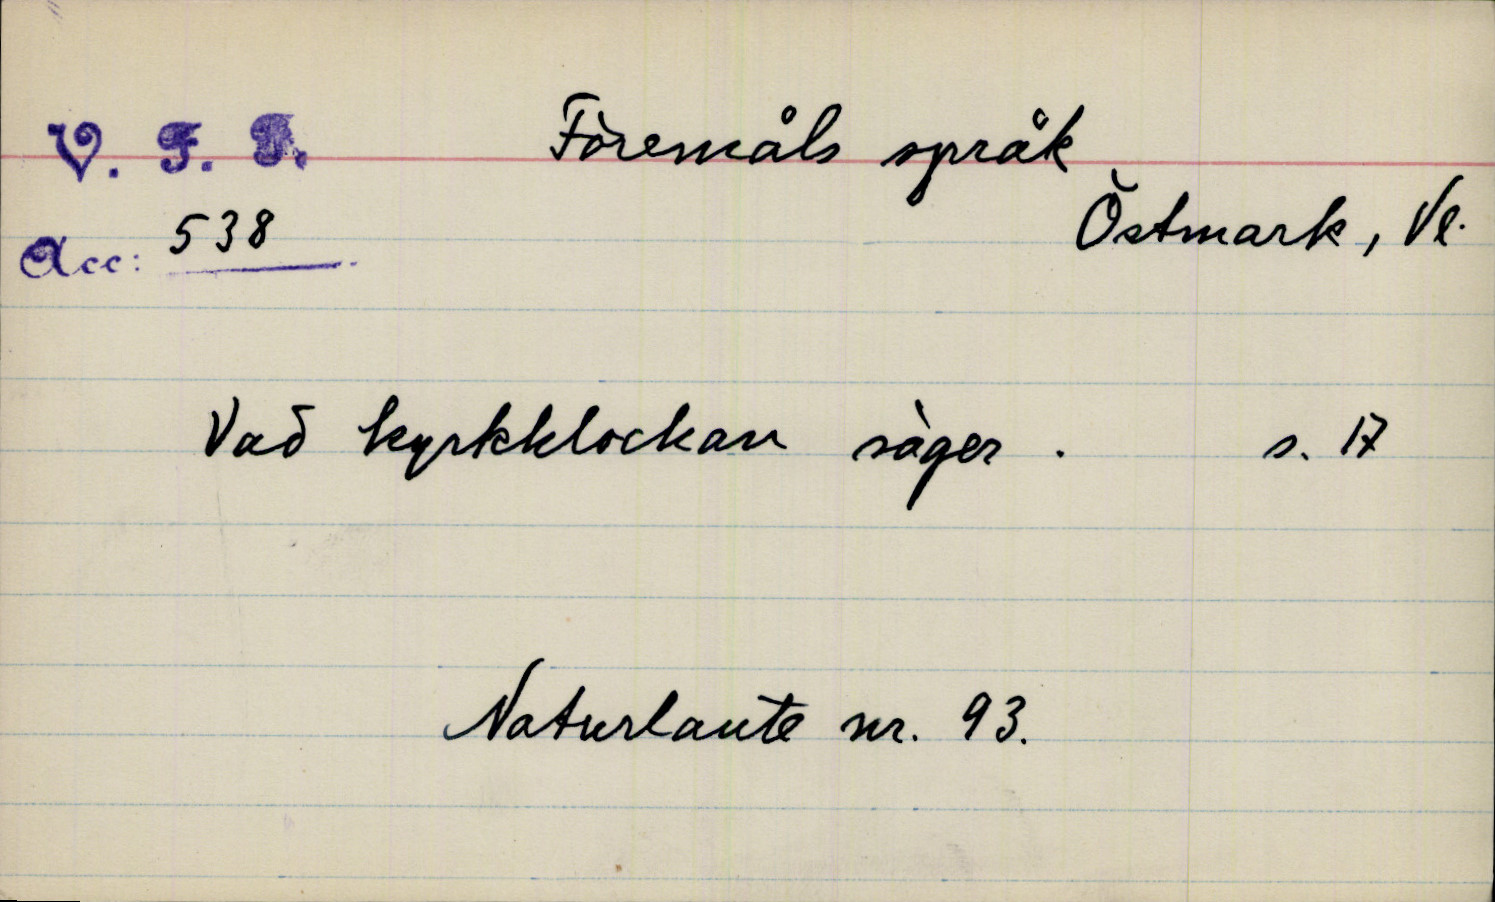 V. F. F. Föremåls språk
Östmark, Vl.
Acc: 538
Vad kyrkklockan säger. s. 17
Naturlaute nr. 93.